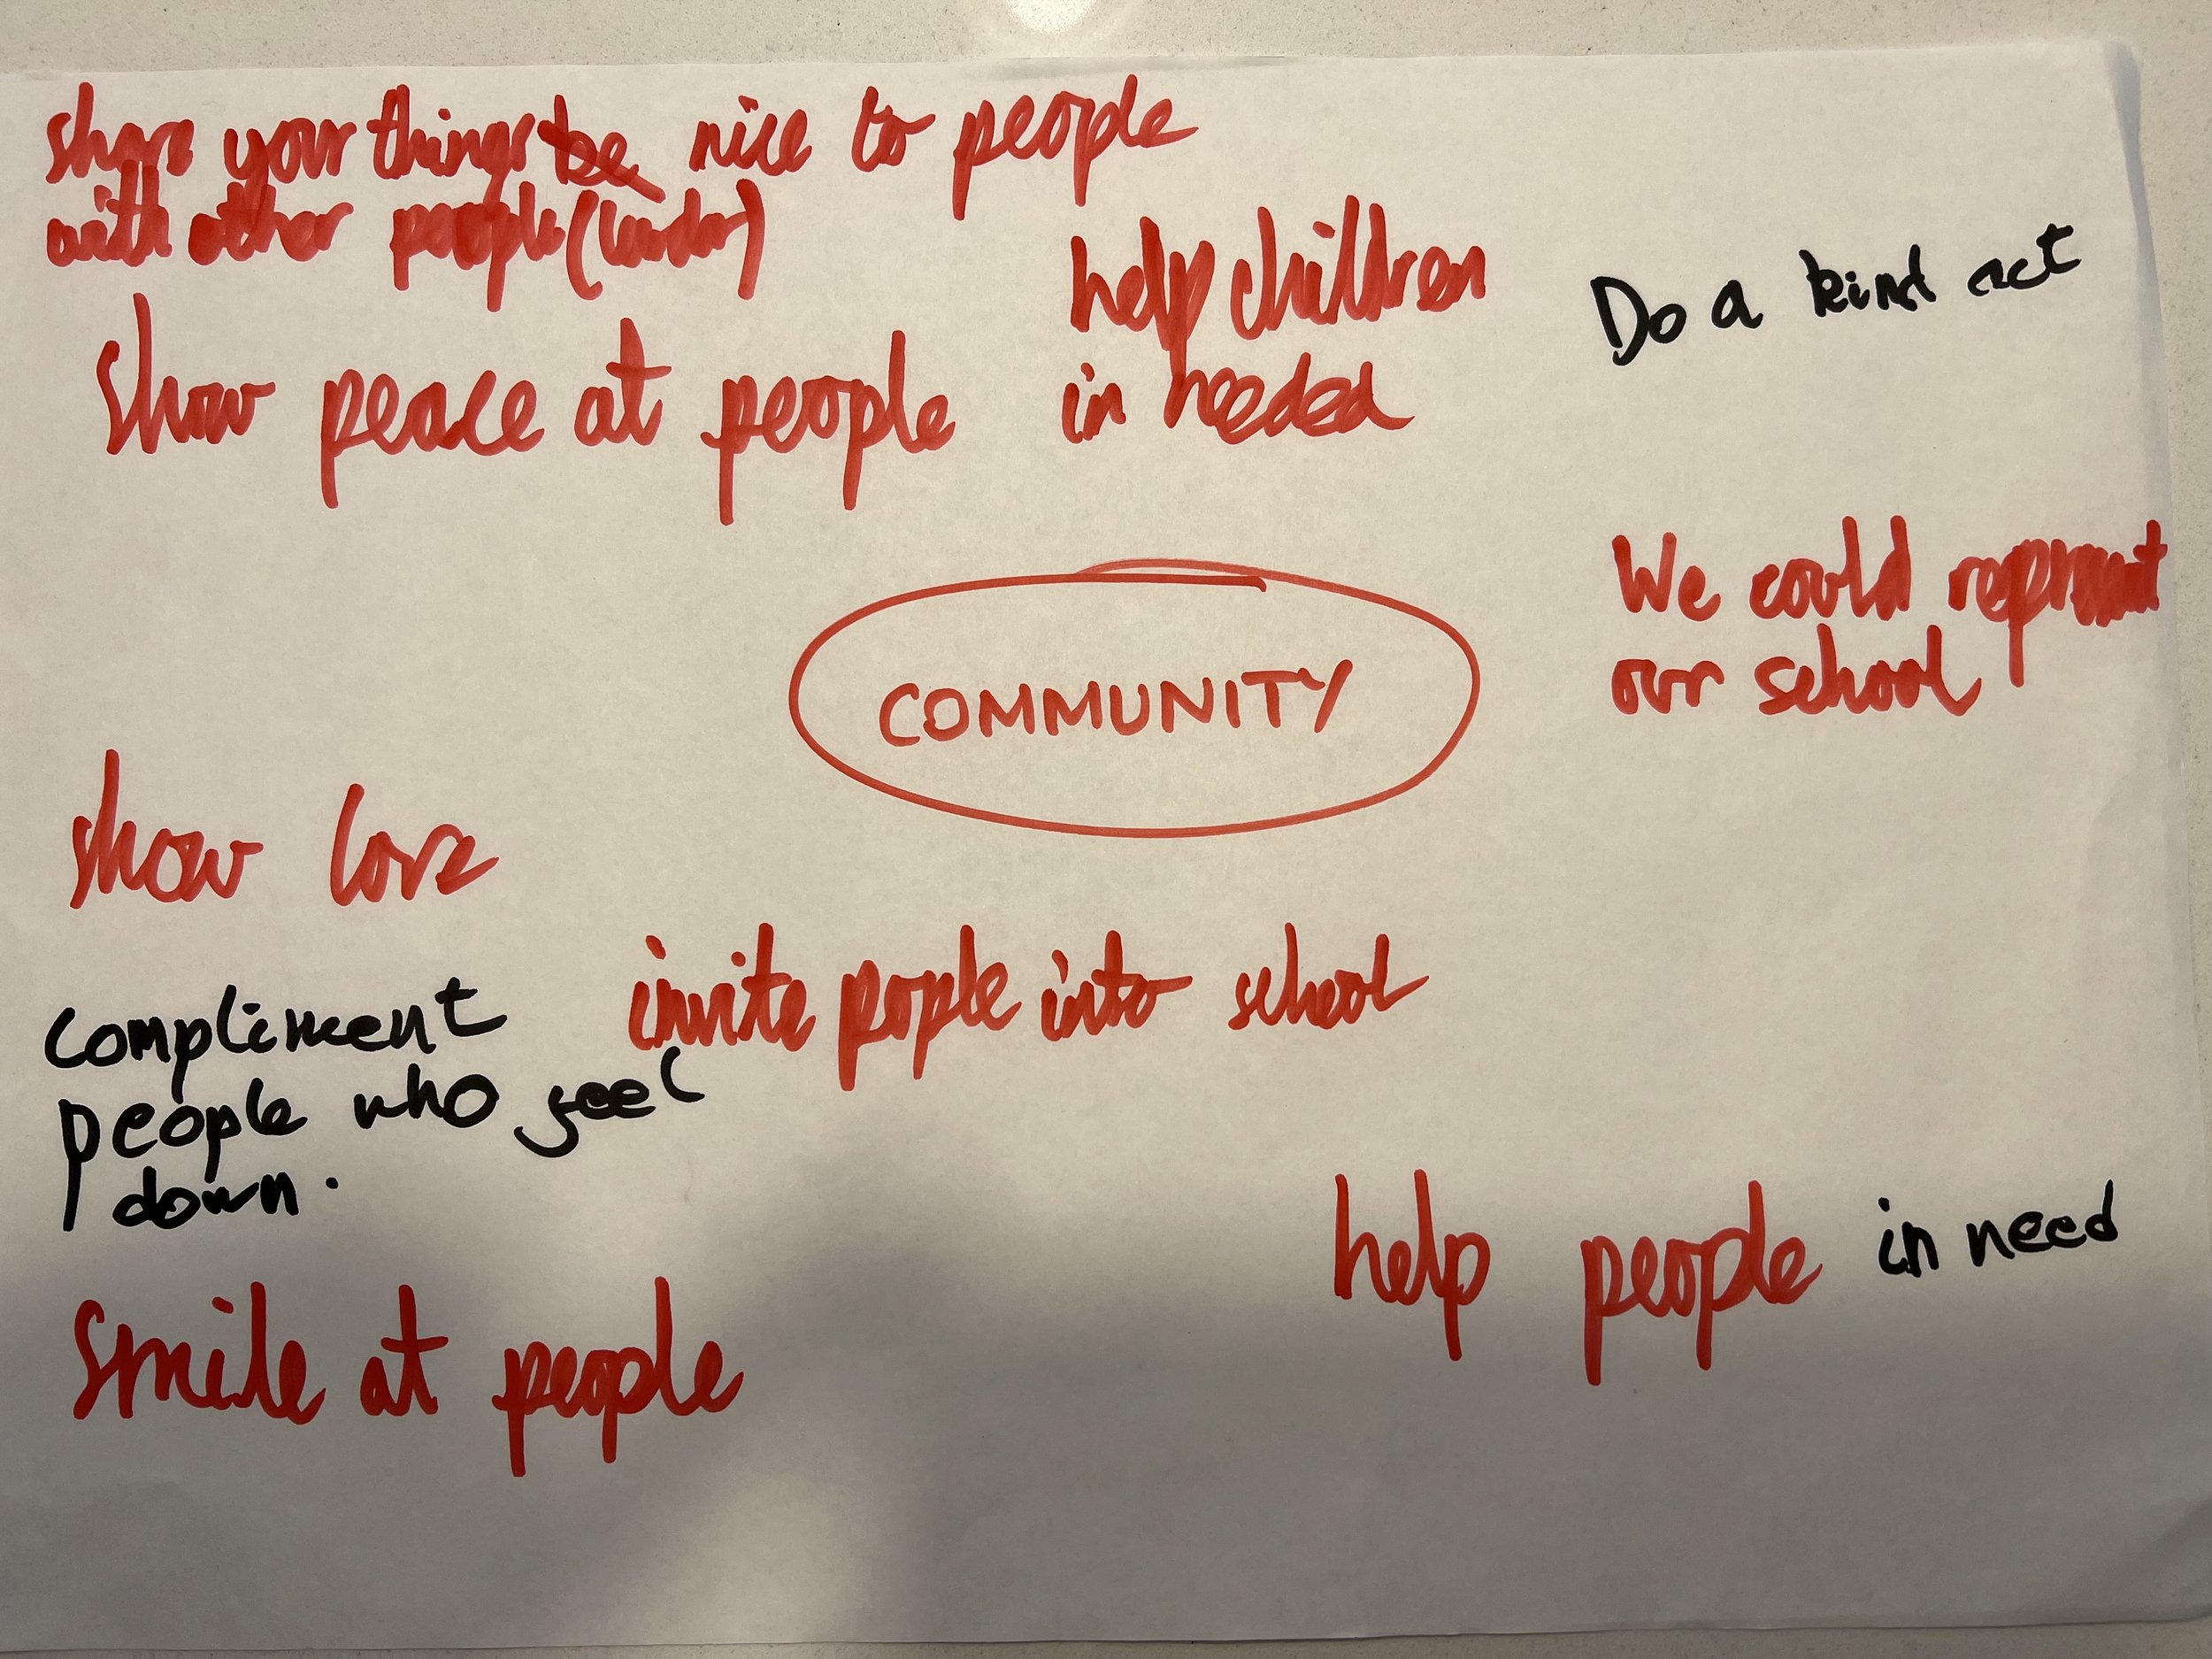 share your things be nice to people
with other people
help children
in needed
Do a kind act
show peace at people
We could represent
our school
COMMUNITY
show love
invite pople into school
compliment
people who feel
down.
help people in need
smile at people